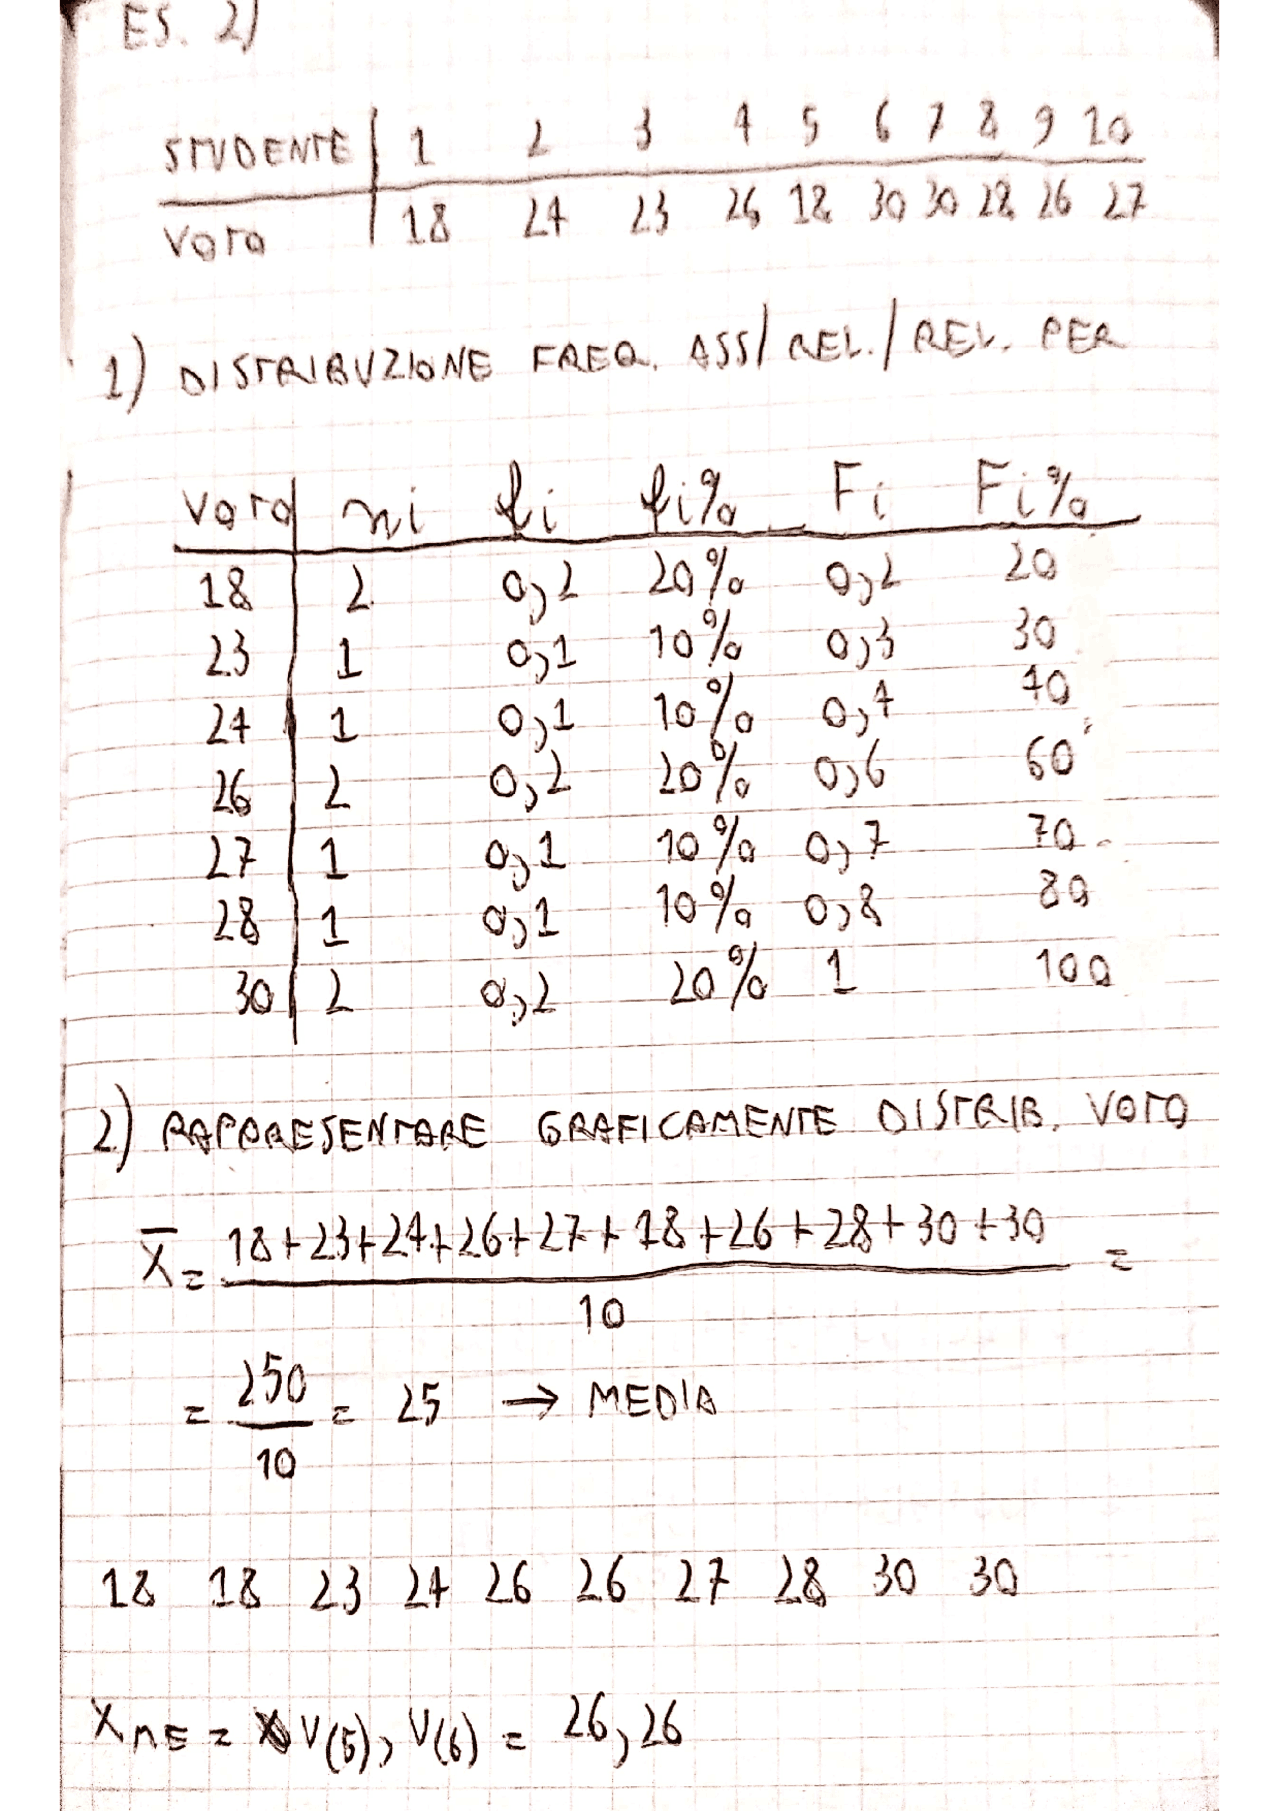 ES. 2)
STUDENTE 1 2 3 4 5 6 7 8 9 10
VOTO 18 24 23 26 18 30 30 28 26 27
1) DISTRIBUZIONE FREQ. ASS/REL./REL. PER
VOTO ni fi fi% Fi Fi%
18 2 0,2 20% 0,2 20
23 1 0,1 10% 0,3 30
24 1 0,1 10% 0,4 40
26 2 0,2 20% 0,6 60
27 1 0,1 10% 0,7 70
28 1 0,1 10% 0,8 80
30 2 0,2 20% 1 100
2) RAPPRESENTARE GRAFICAMENTE DISTRIB. VOTO
18+23+24+26+27+18+26+28+30+30
X̄ = =
10
= 250 = 25 → MEDIA
10
18 18 23 24 26 26 27 28 30 30
XME = V(5), V(6) = 26, 26